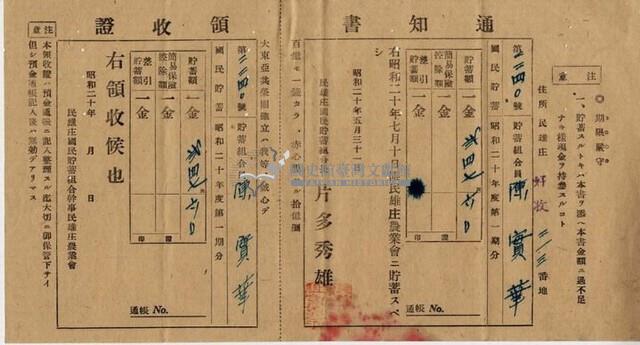 通知書
注意
◎期限嚴守
一、貯蓄スルトキハ本書ヲ添ヘ本書金額ニ過不足
ナキ樣現金ヲ持參スルコト
住所 民雄庄 好收 二一三番地
第二二四〇號 貯蓄組合員 陳實華
國民貯蓄 昭和二十年度第一期分
貯蓄額 一金
簡易保險控除額
差引貯蓄額 一金
證印
通帳 No.
右昭和二十年七月十日迄民雄庄農業會ニ貯蓄スベシ
昭和二十年五月三十一日
民雄庄國民貯蓄組合
片多秀雄
百億モ一錢カラ、赤心
拾億圓
大東亞共榮圈確立
領收證
第二二四〇號 貯蓄組合員 陳實華
國民貯蓄 昭和二十年度第一期分
貯蓄額 一金
簡易保險控除額
差引貯蓄額 一金
證印
通帳 No.
右領收候也
昭和二十年 月 日
民雄庄國民貯蓄組合幹事民雄庄農業會
注意
本領收證ハ預金通帳ニ記入整理スル迄大切ニ御保管下サイ
但シ預金通帳記入後ハ無効デアリマス